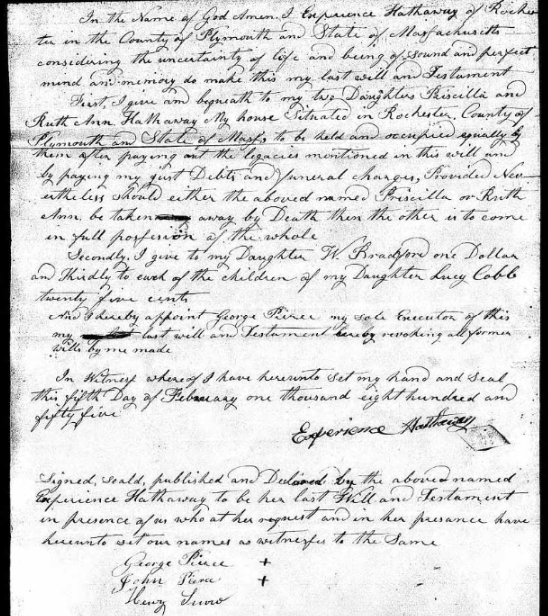 In the Name of God Amen. I Experience Hathaway of Roches
ter in the County of Plymouth and State of Massachusetts
considering the uncertainty of life and being of sound and perfect
mind and memory do make this my last will and Testament
First, I give and bequeath to my two Daughters Priscilla and
Ruth Ann Hathaway My house Situated in Rochester. County of
Plymouth and State of Mass. to be held and occupied equally by
them after paying out the legacies mentioned in this will and
by paying my just Debts and funeral charges, Provided Nev
ertheless Should either the aboved named Priscilla or Ruth
Ann. be taken away by Death then the other is to come
in full possession of the whole
Secondly, I give to my Daughter W. Bradford one Dollar
and Thirdly to each of the children of my Daughter Lucy Cobb
twenty five cents
And I hereby appoint George Pierce my sole Executor of this
my last will and Testament hereby revoking all former
wills by me made
In Witness whereof I have hereunto Set my hand and Seal
this fifth Day of February one thousand eight hundred and
fifty five
Experience Hathaway
Signed, seald, published and Declared by the aboved named
Experience Hathaway to be her last Will and Testament
in presence of us who at her request and in her presance have
hereunto set our names as witnesses to the Same
George Pierce +
John Pierce +
Henry Snow